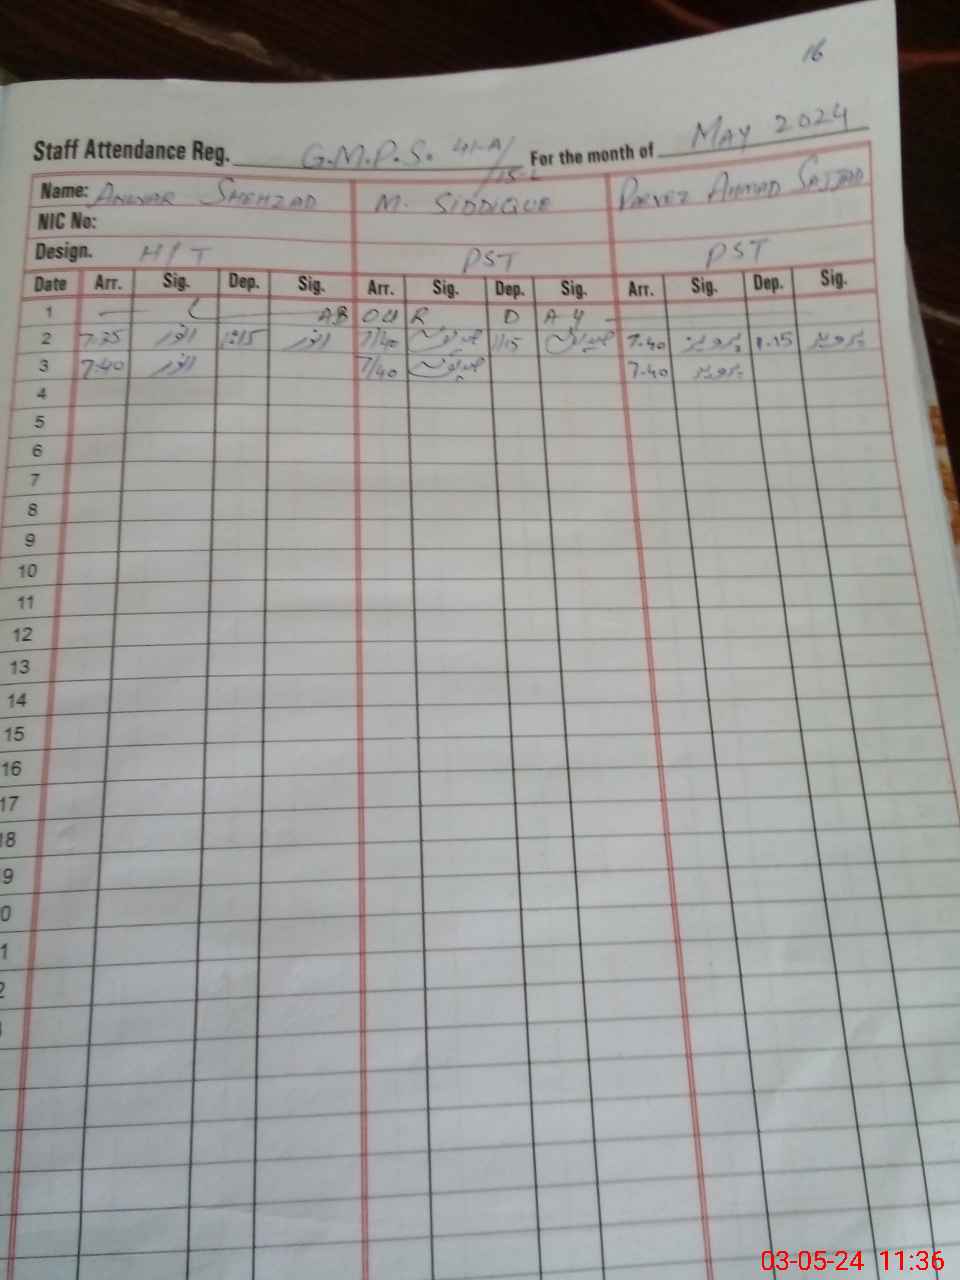 16
Staff Attendance Reg. G.M.P.S. 41-A/15-L For the month of May 2024
Name: ANWAR SHEHZAD M. SIDDIQUE PARVEZ AHMAD SAJJAD
NIC No:
Design. H/T PST PST
Date Arr. Sig. Dep. Sig. Arr. Sig. Dep. Sig. Arr. Sig. Dep. Sig.
1 L AB OU R D A Y
2 7.35 انور 1:15 انور 7/40 1/15 7.40 پرویز 1.15 پرویز
3 7.40 انور 7/40 7.40 پرویز
4
5
6
7
8
9
10
11
12
13
14
15
16
17
18
9
0
1
2
03-05-24 11:36